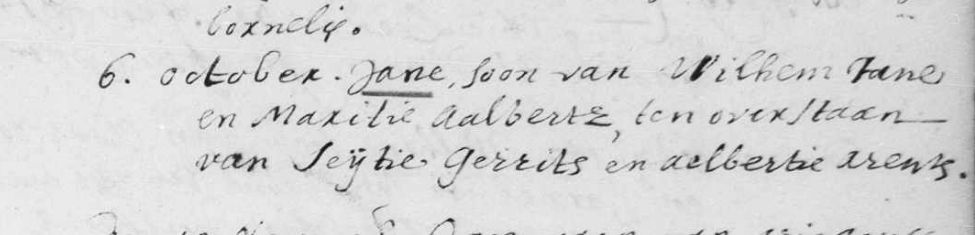 Cornelis.
6. october. Jane, soon van Wilhem Jane
en Maritie Aalberts, ten overstaan
van Seÿtie Gerrits en aelbertie arents.